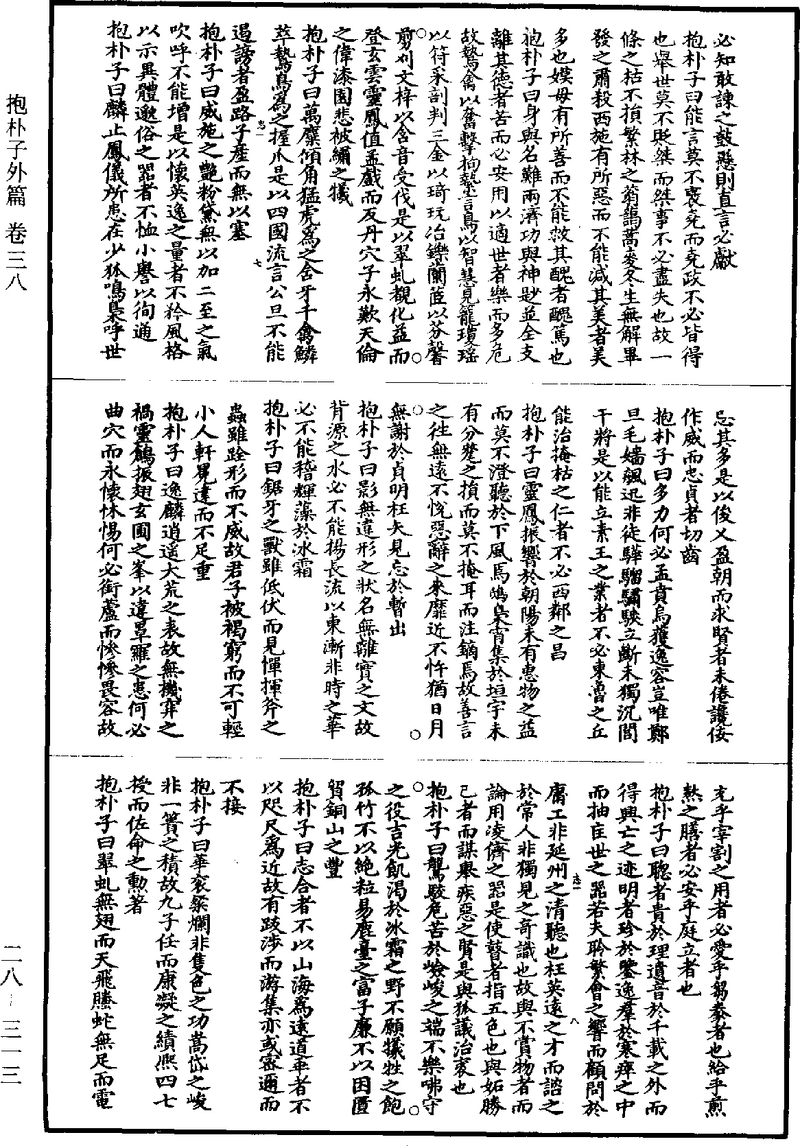 抱朴子外篇 卷三八
二八－三一三
必知敢諫之鼓懸則直言必獻
抱朴子曰能言莫不褒堯而堯政不必皆得
也舉世莫不貶桀而桀事不必盡失也故一
條之枯不損繁林之蓊藹蒿麥冬生無解畢
發之肅殺西施有所惡而不能減其美者美
多也嫫母有所善而不能救其醜者醜篤也
抱朴子曰身與名難兩濟功與神尠並全支
離其德者苦而必安用以適世者樂而多危
故鷙禽以奮擊拘縶言鳥以智慧見籠瓊瑤
以符采剖判三金以琦玩冶鑠蘭茝以芬馨
剪刈文梓以含音受伐是以翠虬覩化益而
登玄雲靈鳳值孟戲而反丹穴子永歎天倫
之偉漆園悲被繡之犧
抱朴子曰萬麋傾角猛虎為之含牙千禽鱗
萃鷙鳥為之握爪是以四國流言公旦不能
遏謗者盈路子產而無以塞
抱朴子曰威施之艷粉黛無以加二至之氣
吹呼不能增是以懷英逸之量者不矜風格
以示異體邈俗之器者不恤小譽以徇通
抱朴子曰麟止鳳儀所患在少狐鳴梟呼世
忌其多是以俊乂盈朝而求賢者未倦讒佞
作威而忠貞者切齒
抱朴子曰多力何必孟賁烏獲逸容豈唯鄭
旦毛嬙飆迅非徒驊騮驌駃立斷未獨沉閭
干將是以能立素王之業者不必東魯之丘
能治掩枯之仁者不必西鄰之昌
抱朴子曰靈鳳振響於朝陽未有惠物之益
而莫不澄聽於下風焉鴟梟宵集於垣宇未
有分氂之損而莫不掩耳而注鏑焉故善言
之往無遠不悅惡辭之來靡近不忤猶日月
無謝於貞明枉矢見忘於暫出
抱朴子曰影無違形之狀名無離實之文故
背源之水必不能揚長流以東漸非時之華
必不能稽輝藻於冰霜
抱朴子曰鋸牙之獸雖低伏而見憚揮斧之
蟲雖跧形而不威故君子被褐窮而不可輕
小人軒冕達而不足重
抱朴子曰逸麟逍遥大荒之表故無機穽之
禍靈鶴振翅玄圃之峯以違罩羅之患何必
曲穴而永懷怵惕何必銜蘆而慘慘畏容故
充乎宰割之用者必愛乎芻豢者也給乎煎
熬之膳者必安乎庭立者也
抱朴子曰聰者貴於理遺音於千載之外而
得興亡之迹明者珍於鑒逸羣於寒瘁之中
而抽匡世之器若夫聆繁會之響而顧問於
庸工非延州之清聽也枉英遠之才而諮之
於常人非獨見之奇識也故與不賞物者而
論用凌儕之器是使瞽者指五色也與妬勝
己者而謀舉疾惡之賢是與狐議治裘也
抱朴子曰鸞駿危苦於嶮峻之端不樂咈守
之役吉光飢渴於冰霜之野不願犧牲之飽
孤竹不以絶粒易鹿臺之富子廉不以困匱
貿銅山之豐
抱朴子曰志合者不以山海為遠道乖者不
以咫尺為近故有跋涉而游集亦或密邇而
不接
抱朴子曰華衮粲爛非隻色之功嵩岱之峻
非一簣之積故九子任而康凝之績熈四七
授而佐命之勲著
抱朴子曰翠虬無翅而天飛螣蛇無足而電